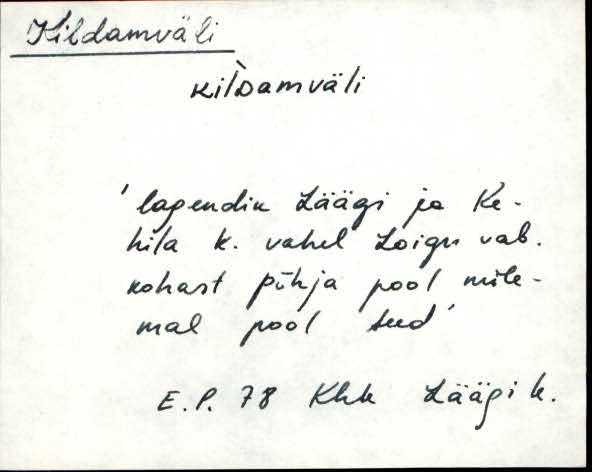 Kildamväli
kil̀Damväli
'lagendik Läägi ja Ke-
hila k. vahel Loigu vab.
kohast põhja pool mõle-
mal pool teed'
E.P. 78 Khk Läägi k.